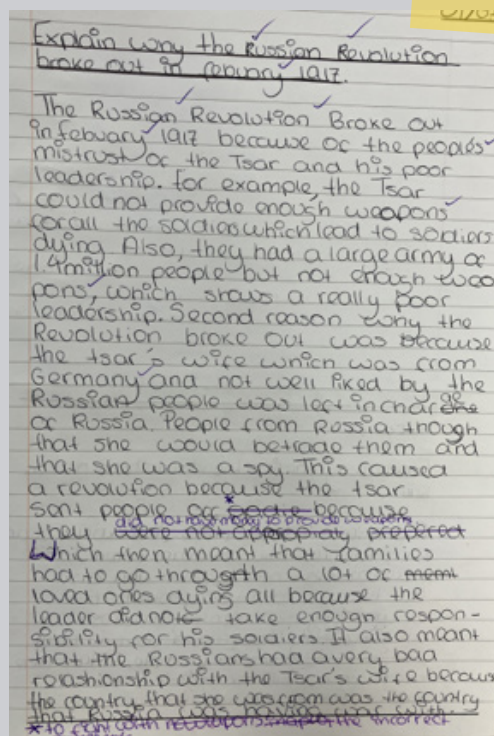 Explain why the Russian Revolution
broke out in febuary 1917.
The Russian Revolution Broke out
in febuary 1917 because of the people's
mistrust of the Tsar and his poor
leadership. for example, the Tsar
could not provide enough weapons
for all the soldies which lead to soldiers
dying Also, they had a large army of
1.4 million people but not enough wea
pons, which shows a really poor
leadership. Second reason why the
Revolution broke out was because
the tsar's wife which was from
Germany and not well liked by the
Russian people was left in charge
of Russia. People from Russia though
that she would betrade them and
that she was a spy. This caused
a revolution because the tsar
sent people off * because
they did not have many to provide weapons
were not appropiatly preferect
Which then meant that families
had to go through a lot of
loved ones dying all because the
leader did not take enough respon-
sibility for his soldiers It also meant
that the Russians had a very bad
relashionship with the Tsar's wife because
the country that she was from was the country
that Russia was having war with.
* to fight with no weapons the incorrect